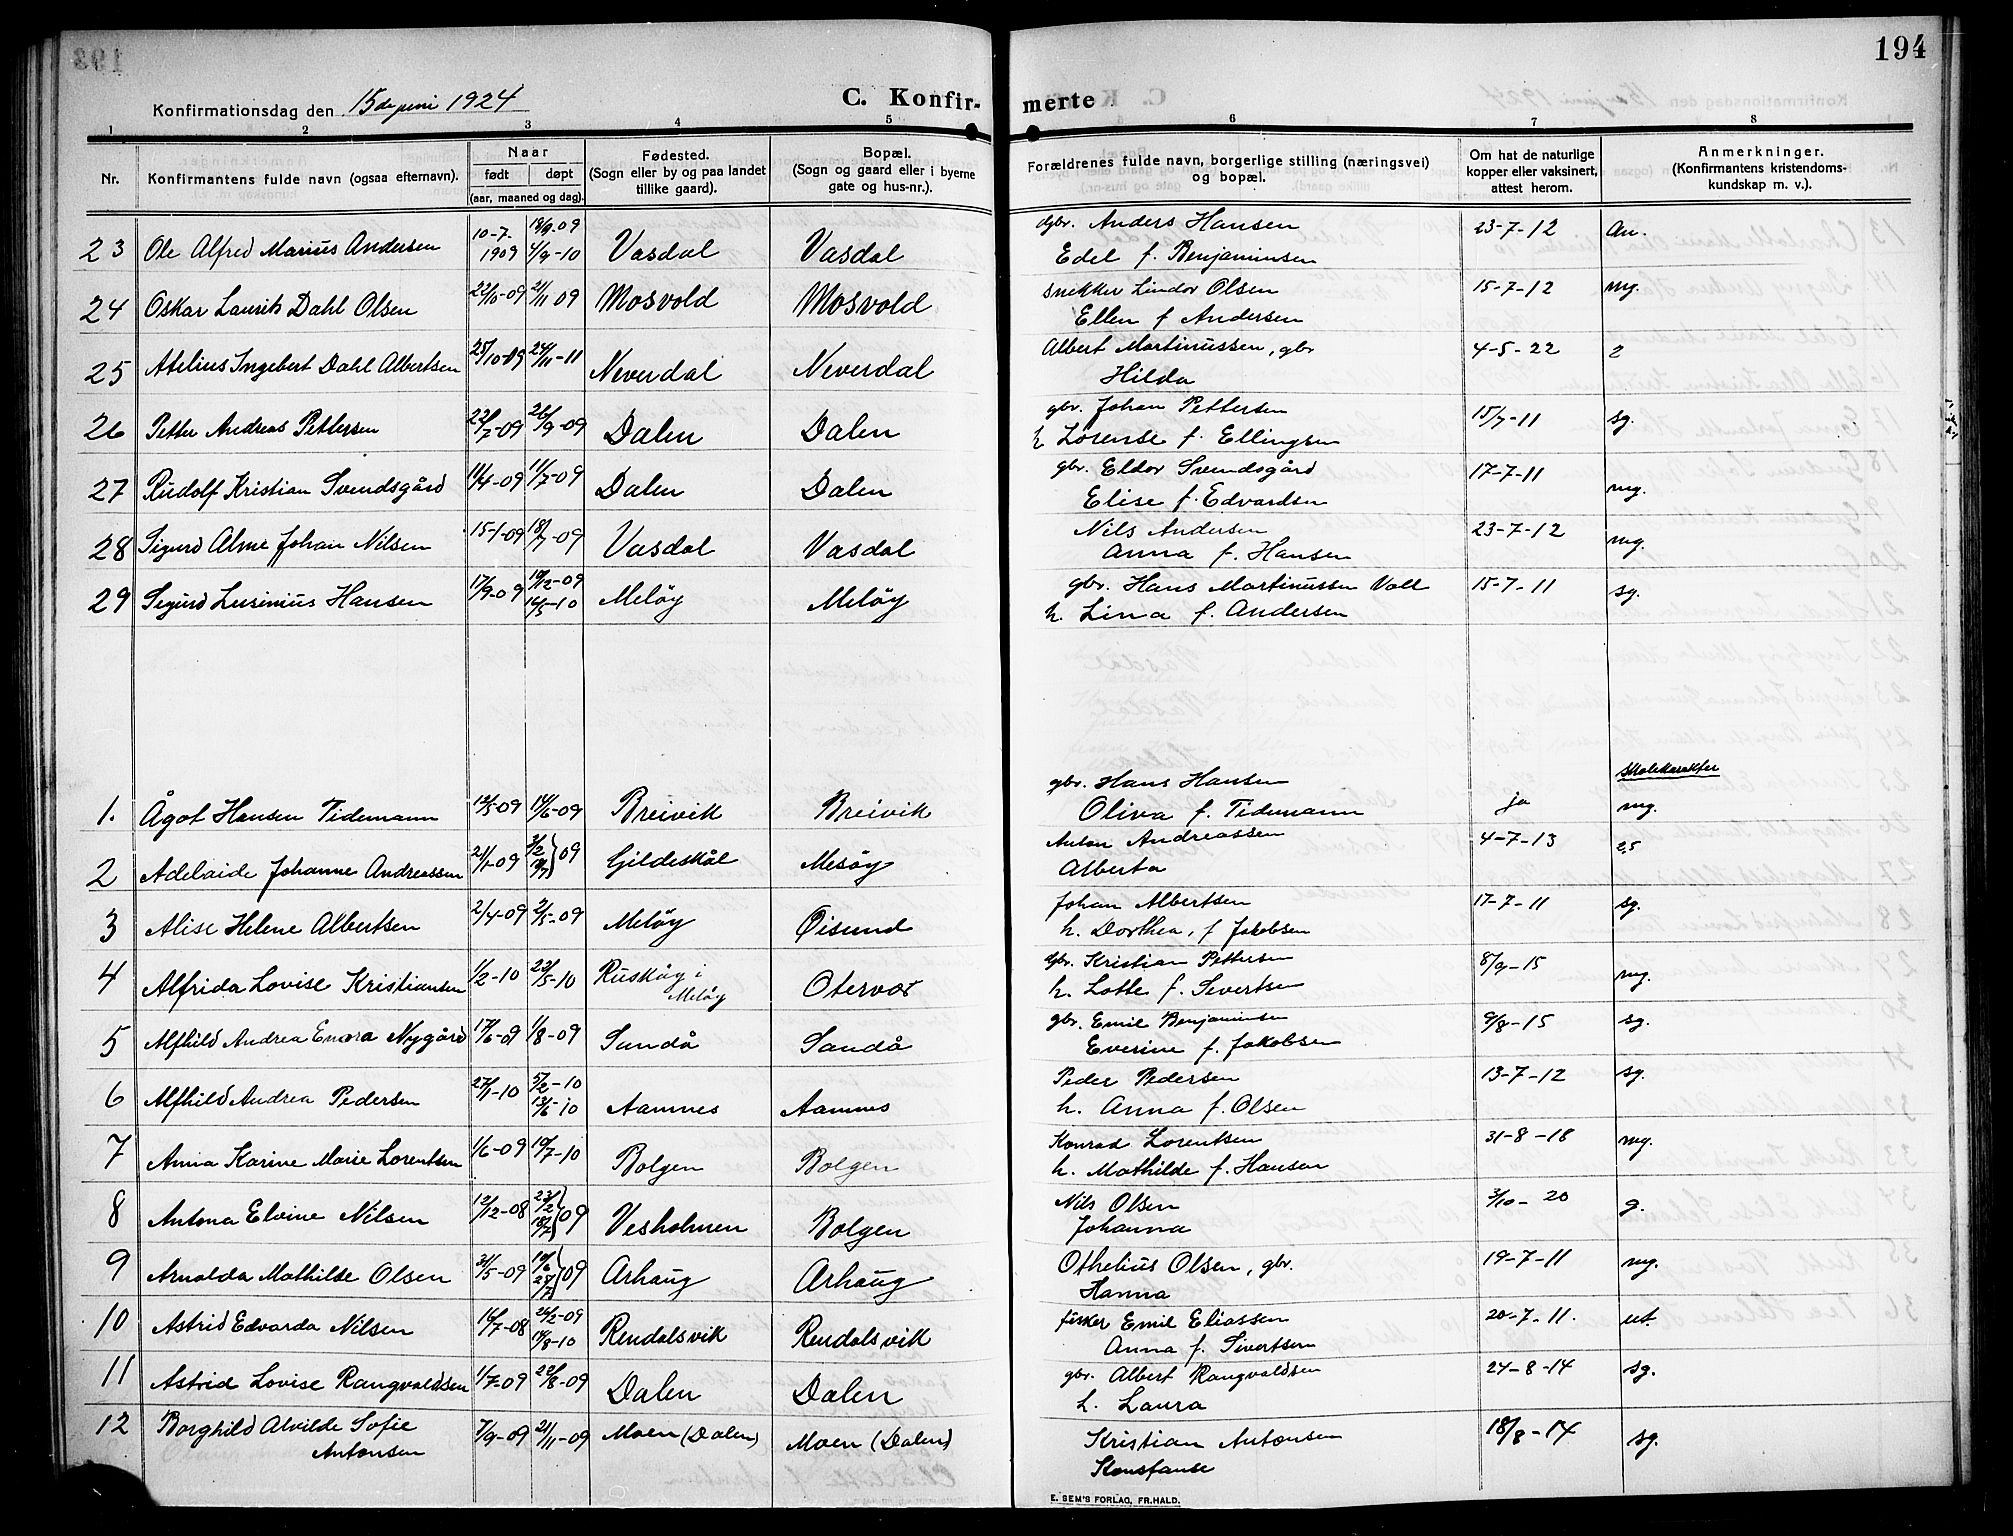 194
Konfirmationsdag den 15de juni 1924
C. Konfirmerte
1 2 3 4 5 6 7 8
Nr. | Konfirmantens fulde navn (ogsaa efternavn). | Naar født døpt (aar, maaned og dag). | Fødested. (Sogn eller by og paa landet tillike gaard). | Bopæl. (Sogn og gaard eller i byerne gate og hus-nr.). | Forældrenes fulde navn, borgerlige stilling (næringsvei) og bopæl. | Om hat de naturlige kopper eller vaksinert, attest herom. | Anmerkninger. (Konfirmantens kristendomskundskap m. v.).
23 Ole Alfred Marius Andersen 10-7-1909 4/9-10 Vasdal Vasdal gbr. Anders Hansen Edel f. Benjaminsen 23-7-12
24 Oskar Laurits Dahl Olsen 22/10-09 21/11 09 Mosvold Mosvold snekker Lindor Olsen Ellen f Andersen 15-7-12 mg.
25 Atelius Ingebert Dahl Albertsen 25/10-09 24/11-11 Neverdal Neverdal Albert Martinussen, gbr Hilda 4-5-22 2
26 Petter Andreas Pettersen 22/7-09 26/9-09 Dalen Dalen gbr. Johan Pettersen h Lorense f. Ellingsen 15/7-11 sg.
27 Rudolf Kristian Svendsgård 11/4-09 11/7-09 Dalen Dalen gbr. Eldor Svendsgård Elise f. Edvardsen 17-7-11 mg.
28 Sigurd Alme Johan Nilsen 15-1-09 18/7-09 Vasdal Vasdal Nils Andersen Anna f. Hansen 23-7-12 mg.
29 Sigurd Lusinius Hansen 17/9-09 16/5-10 Meløy Meløy gbr. Hans Martinussen Vall h. Lina f. Andersen 15-7-11 sg.
skolekarakter
1. Ågot Hansen Tidemann 14/6-09 Breivik Breivik gbr. Hans Hansen Oliva f. Tidemann ja mg.
2 Adelaide Johanne Andreassen 21/1-09 09 Gildeskål Mesøy Anton Andreassen Alberta 4-7-13 2,5
3 Alise Helene Albertsen 2/4-09 2/5-09 Meløy Øisund Johan Albertsen h. Dorthea, f Jakobsen 17-7-11 sg.
4 Alfrida Lovise Kristiansen 1/2-10 23/5-10 Ruskøy i Meløy Otervær gbr. Kristian Pettersen h. Lotte f. Sivertsen 8/9-15 mg.
5 Alfhild Andrea Nygård 17/6-09 1/8-09 Sundå Sandå gbr. Emil Benjaminsen Everine f. Jakobsen 9/8-15 sg.
6 Alfhild Andrea Pedersen 27/1-10 5/2-10 13/6-10 Aamnes Aamnes Peder Pedersen h. Anna f. Olsen 13-7-12 sg.
7 Anna Karine Marie Lorentsen 1/6-09 10/7-10 Bolgen Bolgen Konrad Lorentsen h. Mathilde f. Hansen 31-8-18 mg.
8 Antona Elvine Nilsen 12/12-08 23/2 18/7 09 Vesholmen Bolgen Nils Olsen Johanna 3/10-20 g.
9 Arnolda Mathilde Olsen 31/5-09 10/6 09 Arhaug Arhaug Othelius Olsen, gbr. Hanna 19-7-11 mg.
10 Astrid Edvarda Nilsen 16/7-08 26/2-09 14/8-10 Rendalsvik Rendalsvik fisker Emil Eliassen Anna f. Sivertsen 20-7-11. ut.
11 Astrid Lovise Rangvaldsen 1/7-09 22/8-09 Dalen Dalen gbr. Albert Rangvaldsen h. Laura 24-8-14 sg.
12 Borghild Alvilde Sofie Antonsen 7/9-09 21/11-09 Moen (Dalen) Moen (Dalen) Kristian Antonsen Konstanse 18/8-14 sg.
E. SEM'S FORLAG, FR.HALD.